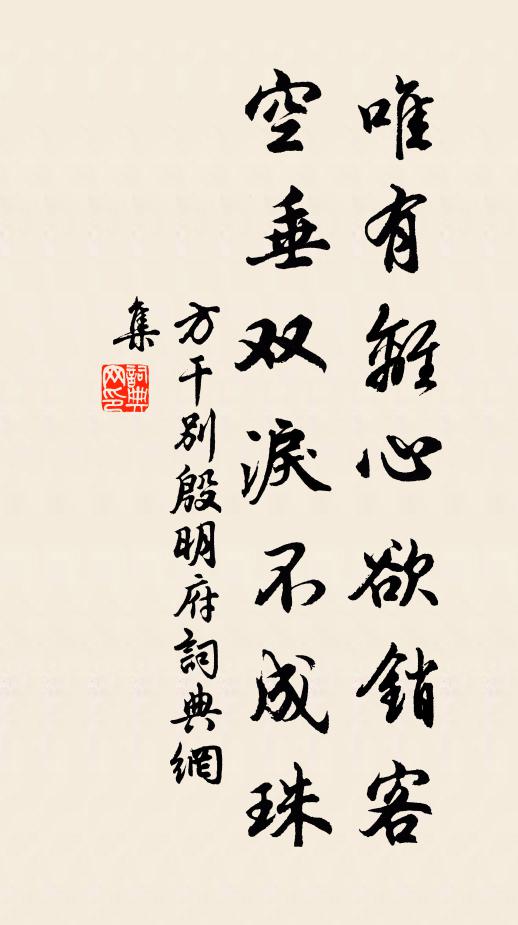 唯有離心欲銷客
空垂双淚不成珠
方干別殷明府詞典網
集
詞典
网印